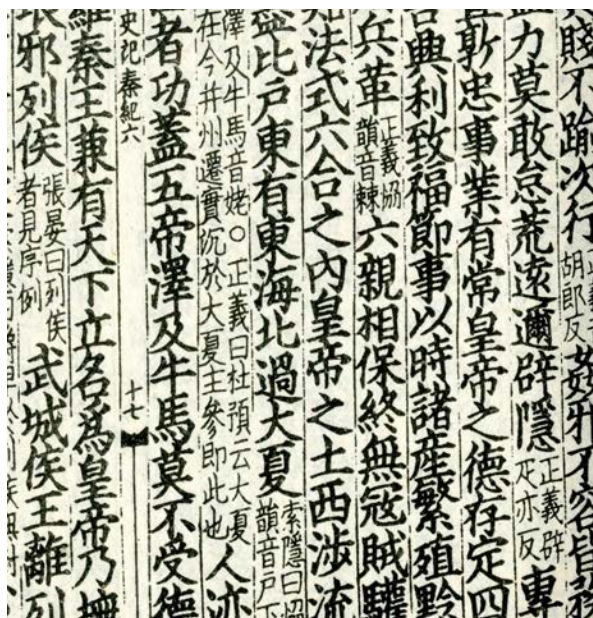 賤不踰次行胡郎反姦邪不容皆務
力莫敢怠荒遠邇辟隱正義辟疋亦反專
忠事業有常皇帝之德存定四
害興利致福節事以時諸産繁殖黔
兵革正義協韻音棘六親相保終無寇賊驩
知法式六合之內皇帝之土西涉流
盡北戶東有東海北過大夏索隱曰協韻音戶下
澤及牛馬音姥○正義曰杜預云大夏在今并州遷實沉於大夏主參即此也人迹
者功蓋五帝澤及牛馬莫不受德
史記秦紀六 十七
維秦王兼有天下立名爲皇帝乃撫
邪列侯張晏曰列侯者見序例武城侯王離列